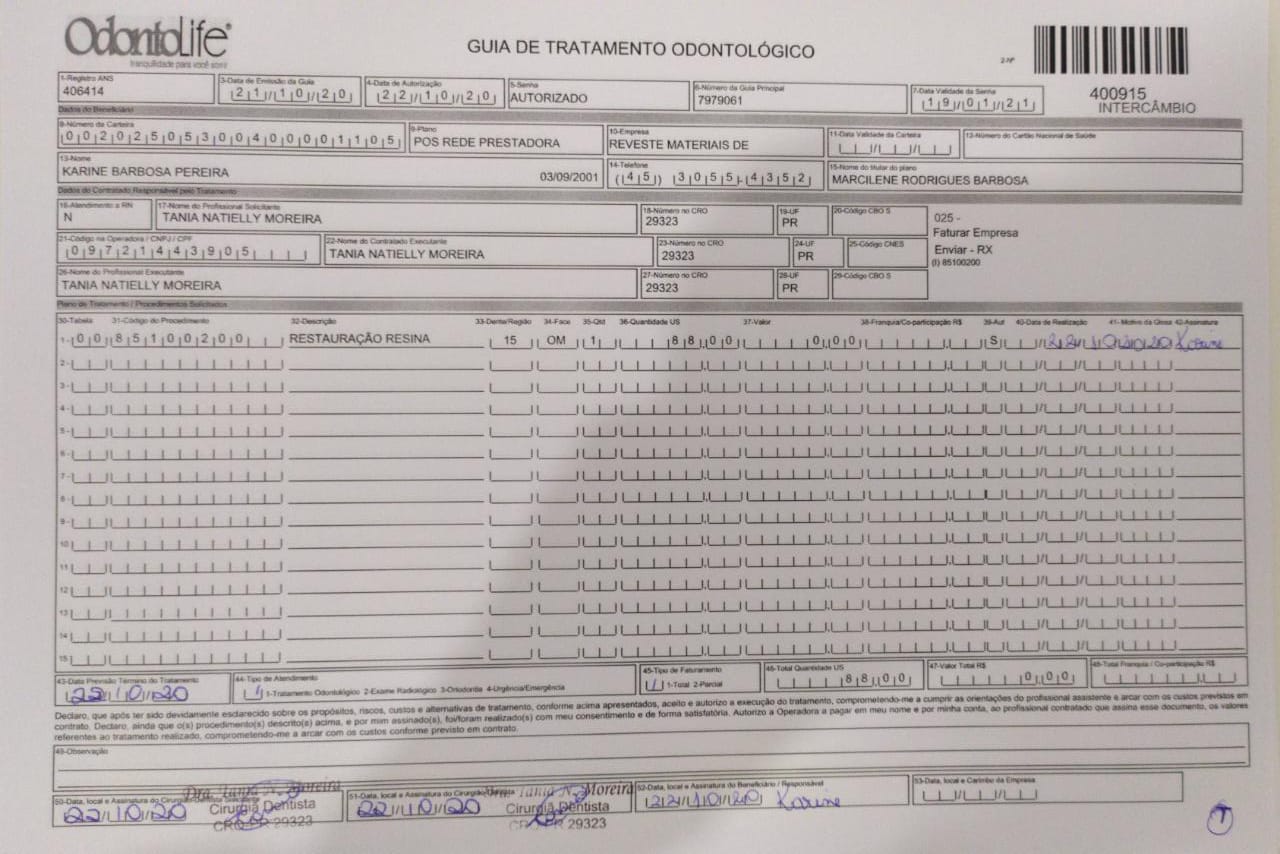 OdontoLife®
tranquilidade para você sorrir
GUIA DE TRATAMENTO ODONTOLÓGICO
2-Nº
400915
INTERCÂMBIO
1-Registro ANS
406414
3-Data de Emissão da Guia
21/10/20
4-Data de Autorização
22/10/20
5-Senha
AUTORIZADO
6-Número da Guia Principal
7979061
7-Data Validade da Senha
19/01/21
Dados do Beneficiário
8-Número da Carteira
00202505300400001105
9-Plano
POS REDE PRESTADORA
10-Empresa
REVESTE MATERIAIS DE
11-Data Validade da Carteira
12-Número do Cartão Nacional de Saúde
13-Nome
KARINE BARBOSA PEREIRA 03/09/2001
14-Telefone
(45) 3055-4352
15-Nome do titular do plano
MARCILENE RODRIGUES BARBOSA
Dados do Contratado Responsável pelo Tratamento
16-Atendimento a RN
N
17-Nome do Profissional Solicitante
TANIA NATIELLY MOREIRA
18-Número no CRO
29323
19-UF
PR
20-Código CBO S
025 -
Faturar Empresa
Enviar - RX
(I) 85100200
21-Código na Operadora / CNPJ / CPF
09721443905
22-Nome do Contratado Executante
TANIA NATIELLY MOREIRA
23-Número no CRO
29323
24-UF
PR
25-Código CNES
26-Nome do Profissional Executante
TANIA NATIELLY MOREIRA
27-Número no CRO
29323
28-UF
PR
29-Código CBO S
Plano de Tratamento / Procedimentos Solicitados
30-Tabela 31-Código do Procedimento 32-Descrição 33-Dente/Região 34-Face 35-Qtd 36-Quantidade US 37-Valor 38-Franquia/Co-participação R$ 39-Aut 40-Data de Realização 41- Motivo da Glosa 42-Assinatura
1- 00 85100200 RESTAURAÇÃO RESINA 15 OM 1 88,00 0,00 S 22/10/20 Karine
2-
3-
4-
5-
6-
7-
8-
9-
10
11
12
13
14
15
43-Data Previsão Término do Tratamento
22/10/20
44-Tipo de Atendimento
1 1-Tratamento Odontológico 2-Exame Radiológico 3-Ortodontia 4-Urgência/Emergência
45-Tipo de Faturamento
1 1-Total 2-Parcial
46-Total Quantidade US
88,00
47-Valor Total R$
0,00
48-Total Franquia / Co-participação R$
Declaro, que após ter sido devidamente esclarecido sobre os propósitos, riscos, custos e alternativas de tratamento, conforme acima apresentados, aceito e autorizo a execução do tratamento, comprometendo-me a cumprir as orientações do profissional assistente e arcar com os custos previstos em
contrato. Declaro, ainda que o(s) procedimento(s) descrito(s) acima, e por mim assinado(s), foi/foram realizado(s) com meu consentimento e de forma satisfatória. Autorizo a Operadora a pagar em meu nome e por minha conta, ao profissional contratado que assina esse documento, os valores
referentes ao tratamento realizado, comprometendo-me a arcar com os custos conforme previsto em contrato.
49-Observação
50-Data, local e Assinatura do Cirurgião-Dentista Solicitante
22/10/20
Dra. Tania N. Moreira
Cirurgiã Dentista
CRO-PR 29323
51-Data, local e Assinatura do Cirurgião-Dentista
22/10/20
Dra. Tania N. Moreira
Cirurgiã Dentista
CRO-PR 29323
52-Data, local e Assinatura do Beneficiário / Responsável
22/10/20 Karine
53-Data, local e Carimbo da Empresa